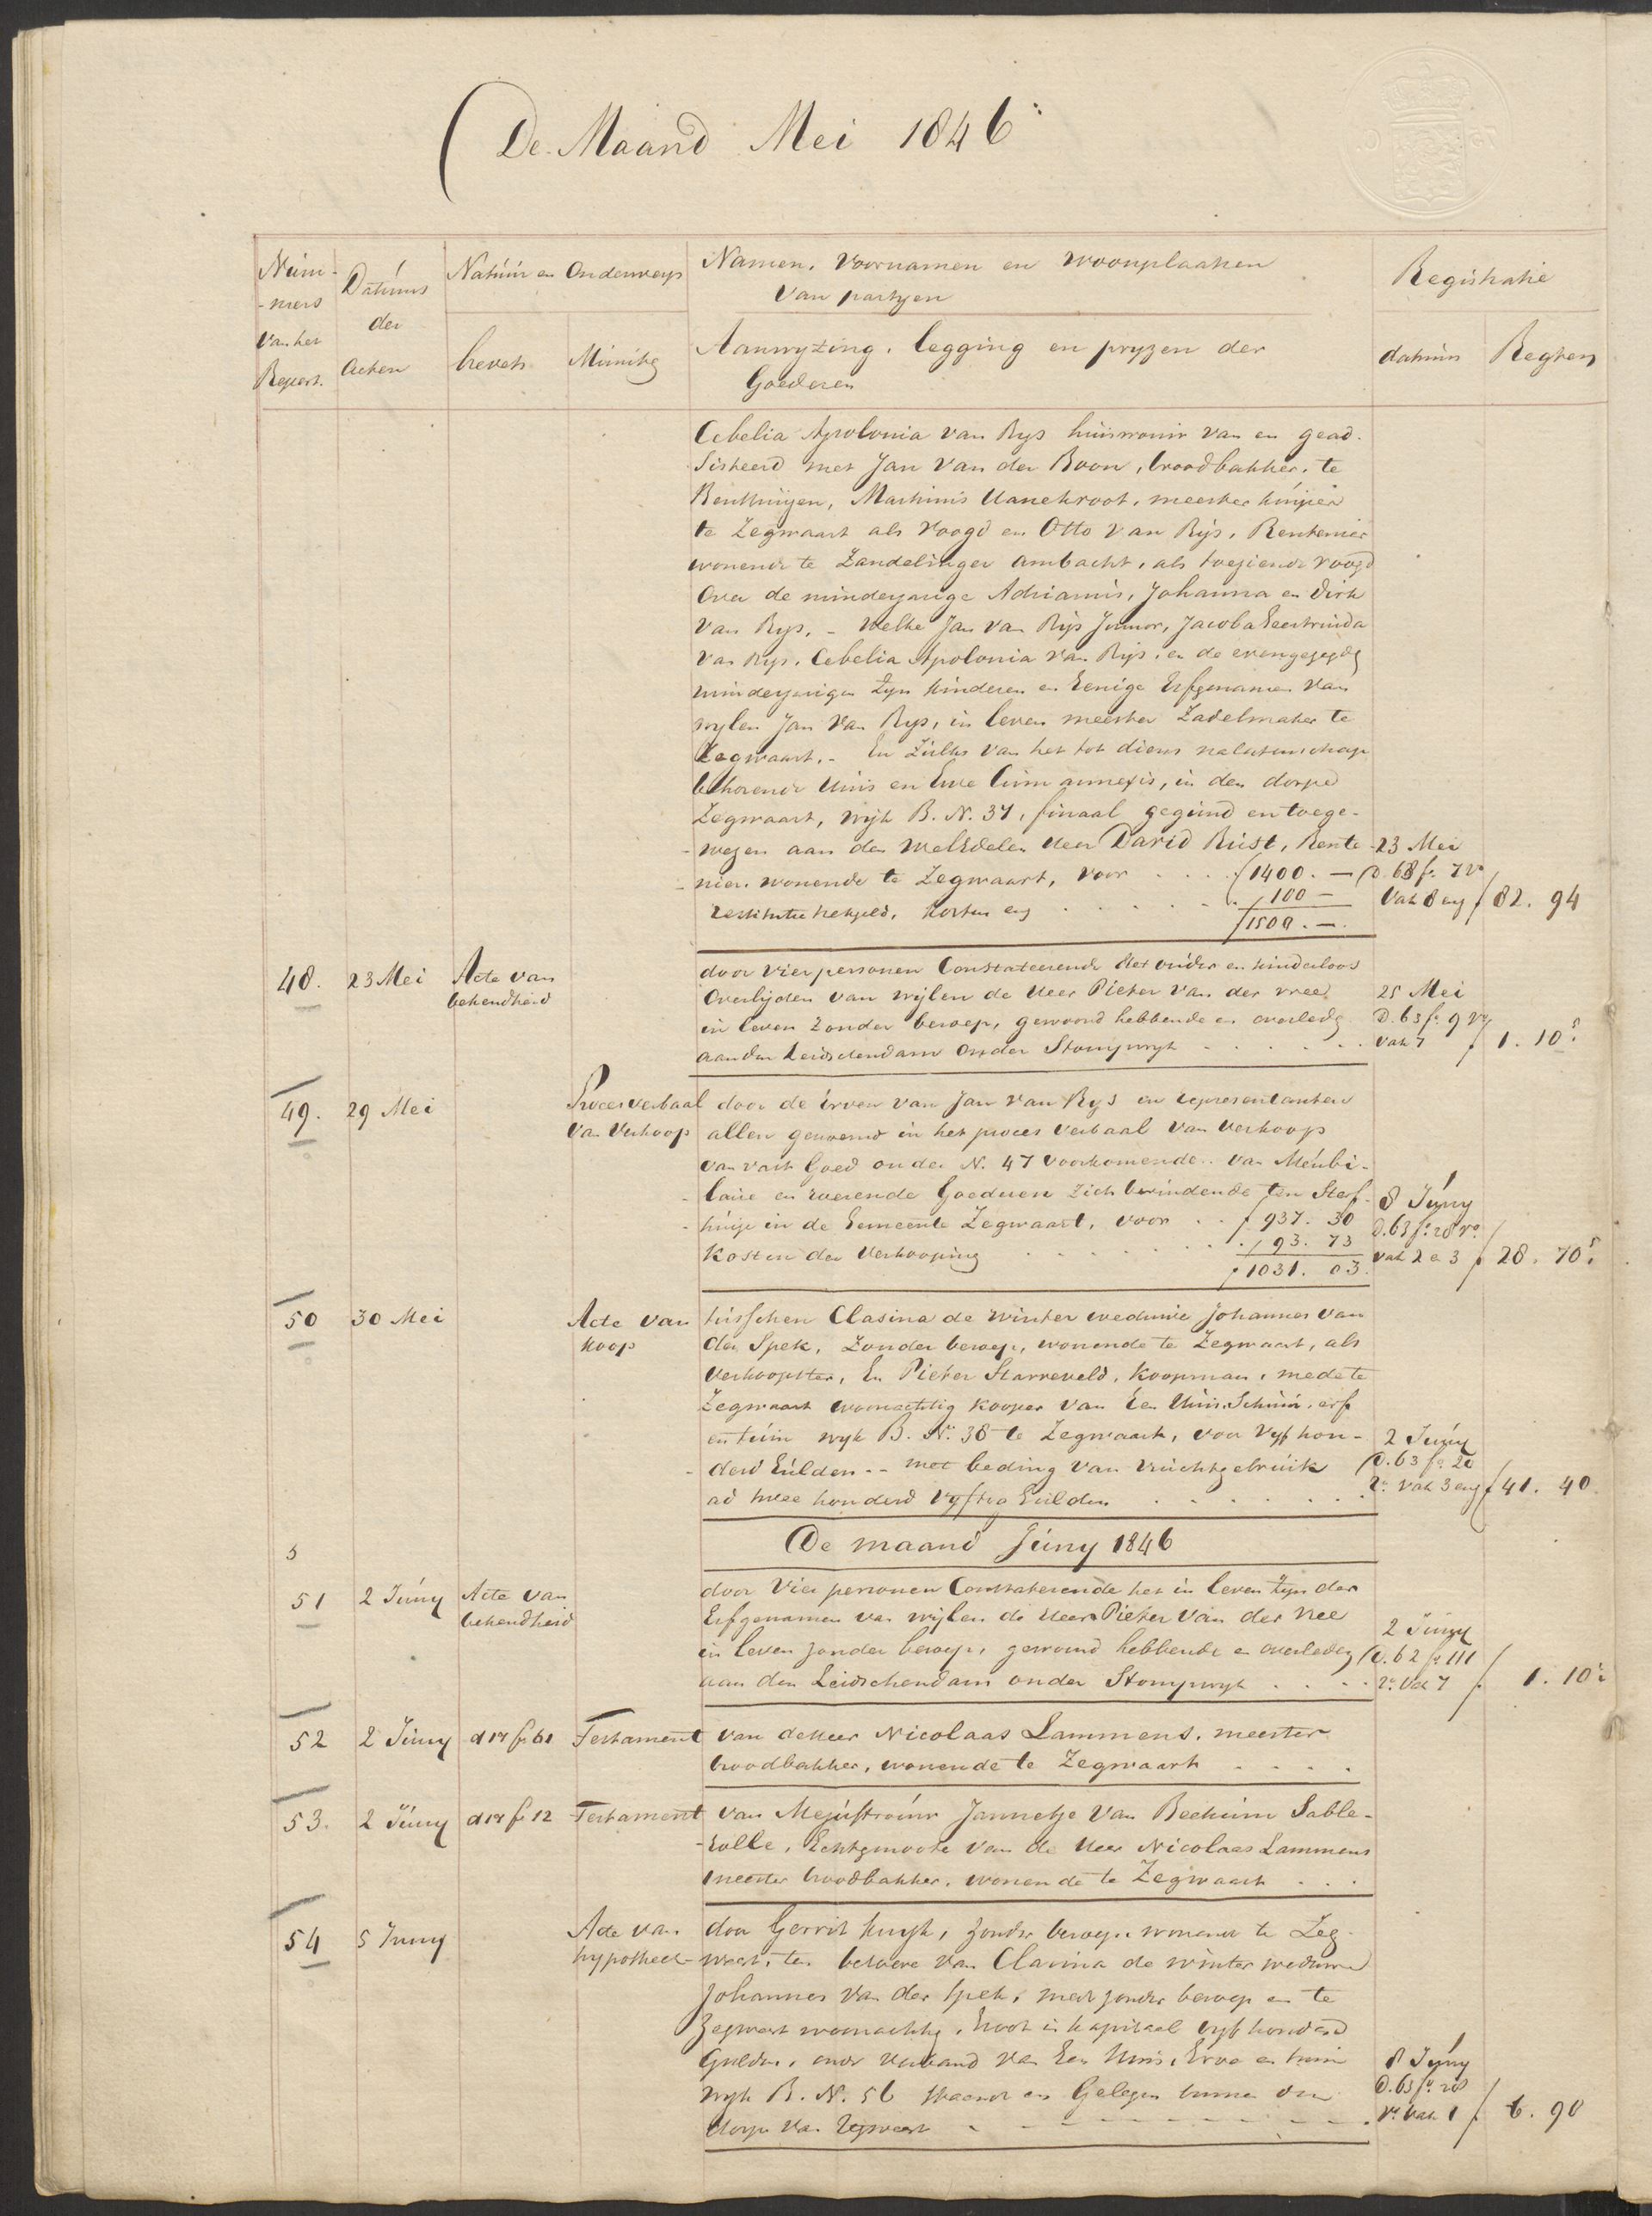 De Maand Mei 1846
Num-
-mers
van het
Repert.
Datums
der
Acten
Natuur en Onderwerp
brevets
Minuten
Namen, Voornamen en Woonplaatsen
van partyen
Aanwyzing, legging en pryzen der
Goederen
Registratie
datum
Regten
Cebelia Apolonia van Rys huisvrouw van en gead-
sisteerd met Jan van der Boon, broodbakker, te
Benthuijzen, Martinus Hanekroot, meester kuiper
te Zegwaart als Voogd en Otto van Rijs, Rentenier
wonende te Zandelinger ambacht, als toeziende voogd
Over de minderjarige Adrianus, Johanna en Dirk
van Rys, - Welke Jan van Rijs Junior, Jacoba Geertruida
van Rijs, Cebelia Apolonia van Rijs, en de evengezegde
minderjarigen zyn kinderen en Eenige Erfgenamen van
wylen Jan van Rys, in leven meester Zadelmaker te
Zegwaart. - En Zulks van het tot diens nalatenschap
behorende Huis en Erve Cum annexis, in den dorpe
Zegwaart, wijk B. N. 37, finaal gegund en toege-
-wezen aan den WelEdelen Heer David Rust, Rente-
-nier wonende te Zegwaart, voor . . . . ƒ 1400. —
restitutie , kosten enz . . . . . ƒ 100 —
ƒ 1500. —
23 Mei
D. 63 fo. 7 vo
Vak 8 enz ƒ 82. 94
48. 23 Mei Acte van
bekendheid
door vier personen Constateerende Het ouder en kinderloos
Overlijden van wijlen de Heer Pieter van der Vree
in leven zonder beroep, gewoond hebbende en overleden
aan den Leidschendam onder Stompwyk . . . . . .
25 Mei
D. 63 fo. 9 vo
Vak 7 ƒ 1. 10 5
49. 29 Mei Proces verbaal
van Verkoop
door de Erven van Jan van Rys en representanten
allen genoemd in het proces Verbaal van Verkoop
van vast Goed onder N. 47 voorkomende.. van Meubi-
-laire en roerende Goederen zich bevindende ten Sterf-
-huize in de Gemeente Zegwaart, voor . . ƒ 937. 30
Kosten der Verkooping . . . . . . ƒ 93. 73
ƒ 1031. 03.
8 Juny
D. 63 fo. 28 vo
vak 2 a 3 ƒ 28. 70 5
50 30 Mei Acte van
koop
tusschen Clasina de Winter weduwe Johannes van
der Spek, zonder beroep, wonende te Zegwaart, als
Verkoopster, En Pieter Starreveld, Koopman, mede te
Zegwaart woonachtig kooper van Een Huis, Schuur, erf
en tuin wyk B. No. 38 te Zegwaart, voor Vyf hon-
- derd Gulden. - met beding van vruchtgebruik
ad twee honderd Vyftig Gulden . . . . . . .
2 Juny
D. 63 fo. 20
Vo. vak 3 enz ƒ 41. 40
De maand Juny 1846
5
51 2 Juny Acte van
bekendheid
door Vier personen Constaterende het in leven zyn der
Erfgenamen van wijlen de Heer Pieter van der Vree
in leven zonder beroep, gewoond hebbende en overleden
aan den Leidschendam onder Stompwyk . . . .
2 Juny
D. 62 fo 111
Vo. Vak 7 ƒ 1. 10 5
52 2 Juny d 17 fo. 61 Testament van de Heer Nicolaas Lammens, meester
broodbakker, wonende te Zegwaart . . . .
53. 2 Juny d 17 fo 12 Testament van Mejuffrouw Jannetje van Beekum Sable-
-rolle, Echtgenoote van de Heer Nicolaas Lammens
meester broodbakker, wonende te Zegwaart . . .
54 5 Juny Acte van
hypotheek
door Gerrit Kuyk, zonder beroep wonende te Zeg-
waart, ten behoeve van Clasina de Winter weduwe
Johannes van der Spek, mede zonder beroep en te
Zegwaart woonachtig, Groot in kapitaal vyf honderd
Gulden, onder verband van Een Huis, Erve en tuin
wyk B. N. 56 staande en Gelegen binnen den
dorpe van Zegwaart
8 Juny
D. 63 fo. 28
Vo. Vak 1 ƒ 6. 90